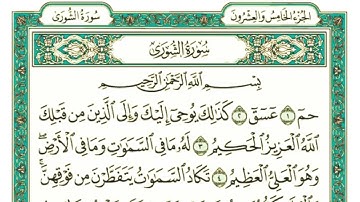 الجزء الخامس والعشرون
سورة الشورى
سورة الشورى
بِسْمِ اللَّهِ الرَّحْمَٰنِ الرَّحِيمِ
حمٓ ١ عٓسٓقٓ ٢ كَذَٰلِكَ يُوحِىٓ إِلَيْكَ وَإِلَى ٱلَّذِينَ مِن قَبْلِكَ
ٱللَّهُ ٱلْعَزِيزُ ٱلْحَكِيمُ ٣ لَهُۥ مَا فِى ٱلسَّمَٰوَٰتِ وَمَا فِى ٱلْأَرْضِ
وَهُوَ ٱلْعَلِىُّ ٱلْعَظِيمُ ٤ تَكَادُ ٱلسَّمَٰوَٰتُ يَتَفَطَّرْنَ مِن فَوْقِهِنَّ